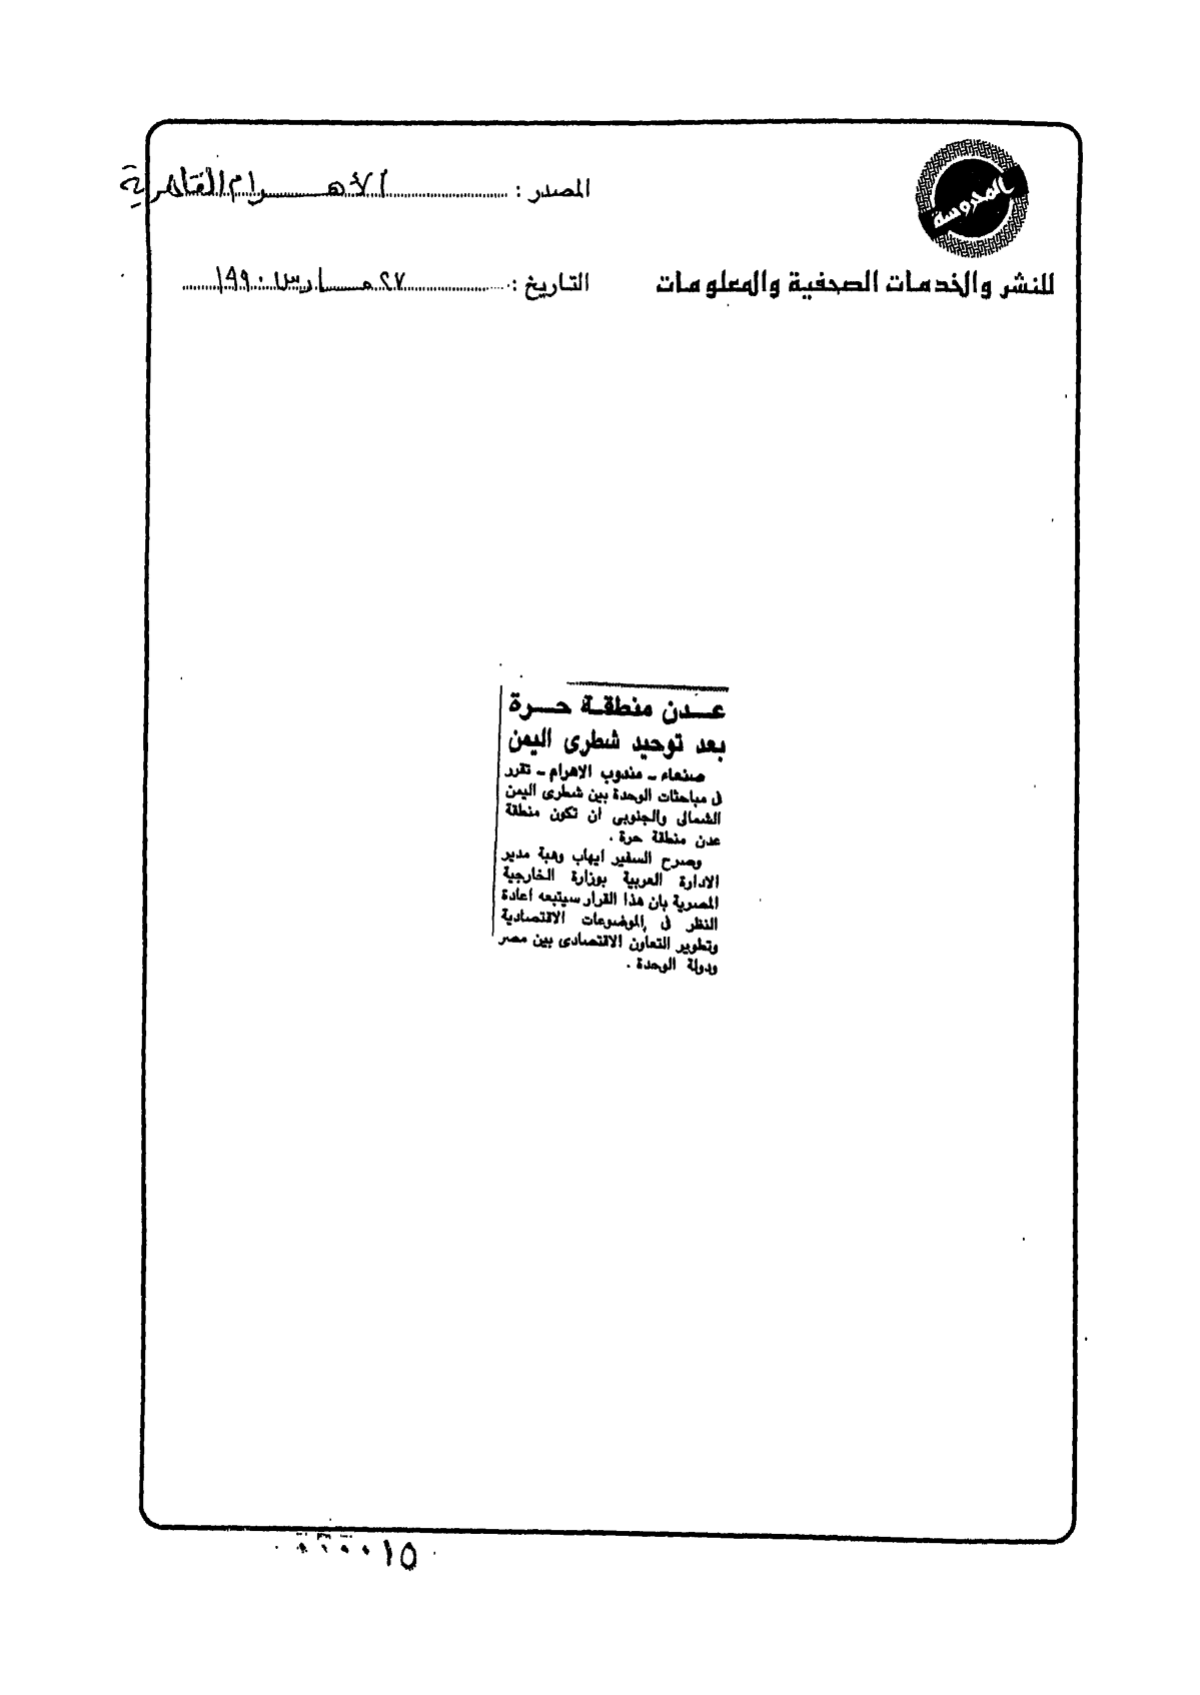 المحروسة
للنشر والخدمات الصحفية والمعلومات
المصدر : الأهرام القاهرية
التاريخ : ٢٧ مارس ١٩٩٠
عــدن منطقــة حــرة
بعد توحيد شطرى اليمن
صنعاء ـ مندوب الاهرام ـ تقرر
فى مباحثات الوحدة بين شطرى اليمن
الشمالى والجنوبى ان تكون منطقة
عدن منطقة حرة .
وصرح السفير ايهاب وهبة مدير
الادارة العربية بوزارة الخارجية
المصرية بان هذا القرار سيتبعه اعادة
النظر فى الموضوعات الاقتصادية
وتطوير التعاون الاقتصادى بين مصر
ودولة الوحدة .